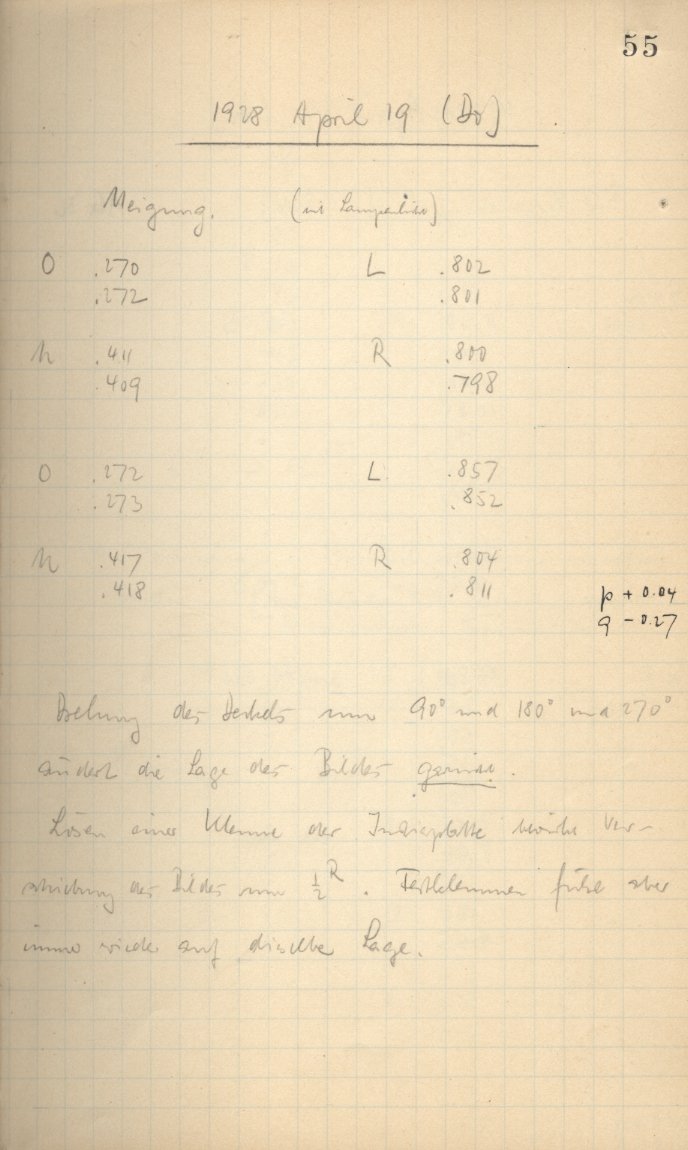 55
1928 April 19 (Do)
Neigung. (mit Lampenlicht)
O .270 L .802
.272 .801
U .411 R .800
.409 .798
O .272 L .857
.273 .852
U .417 R .804
.418 .811
p + 0.04
q - 0.27
Drehung des Deckels um 90° und 180° und 270°
ändert die Lage des Bildes gar nicht.
Lösen einer Klemme der Indiaplatte bewirkt Ver-
schiebung des Bildes um ½ R. Festklemmen führt aber
immer wieder auf dieselbe Lage.